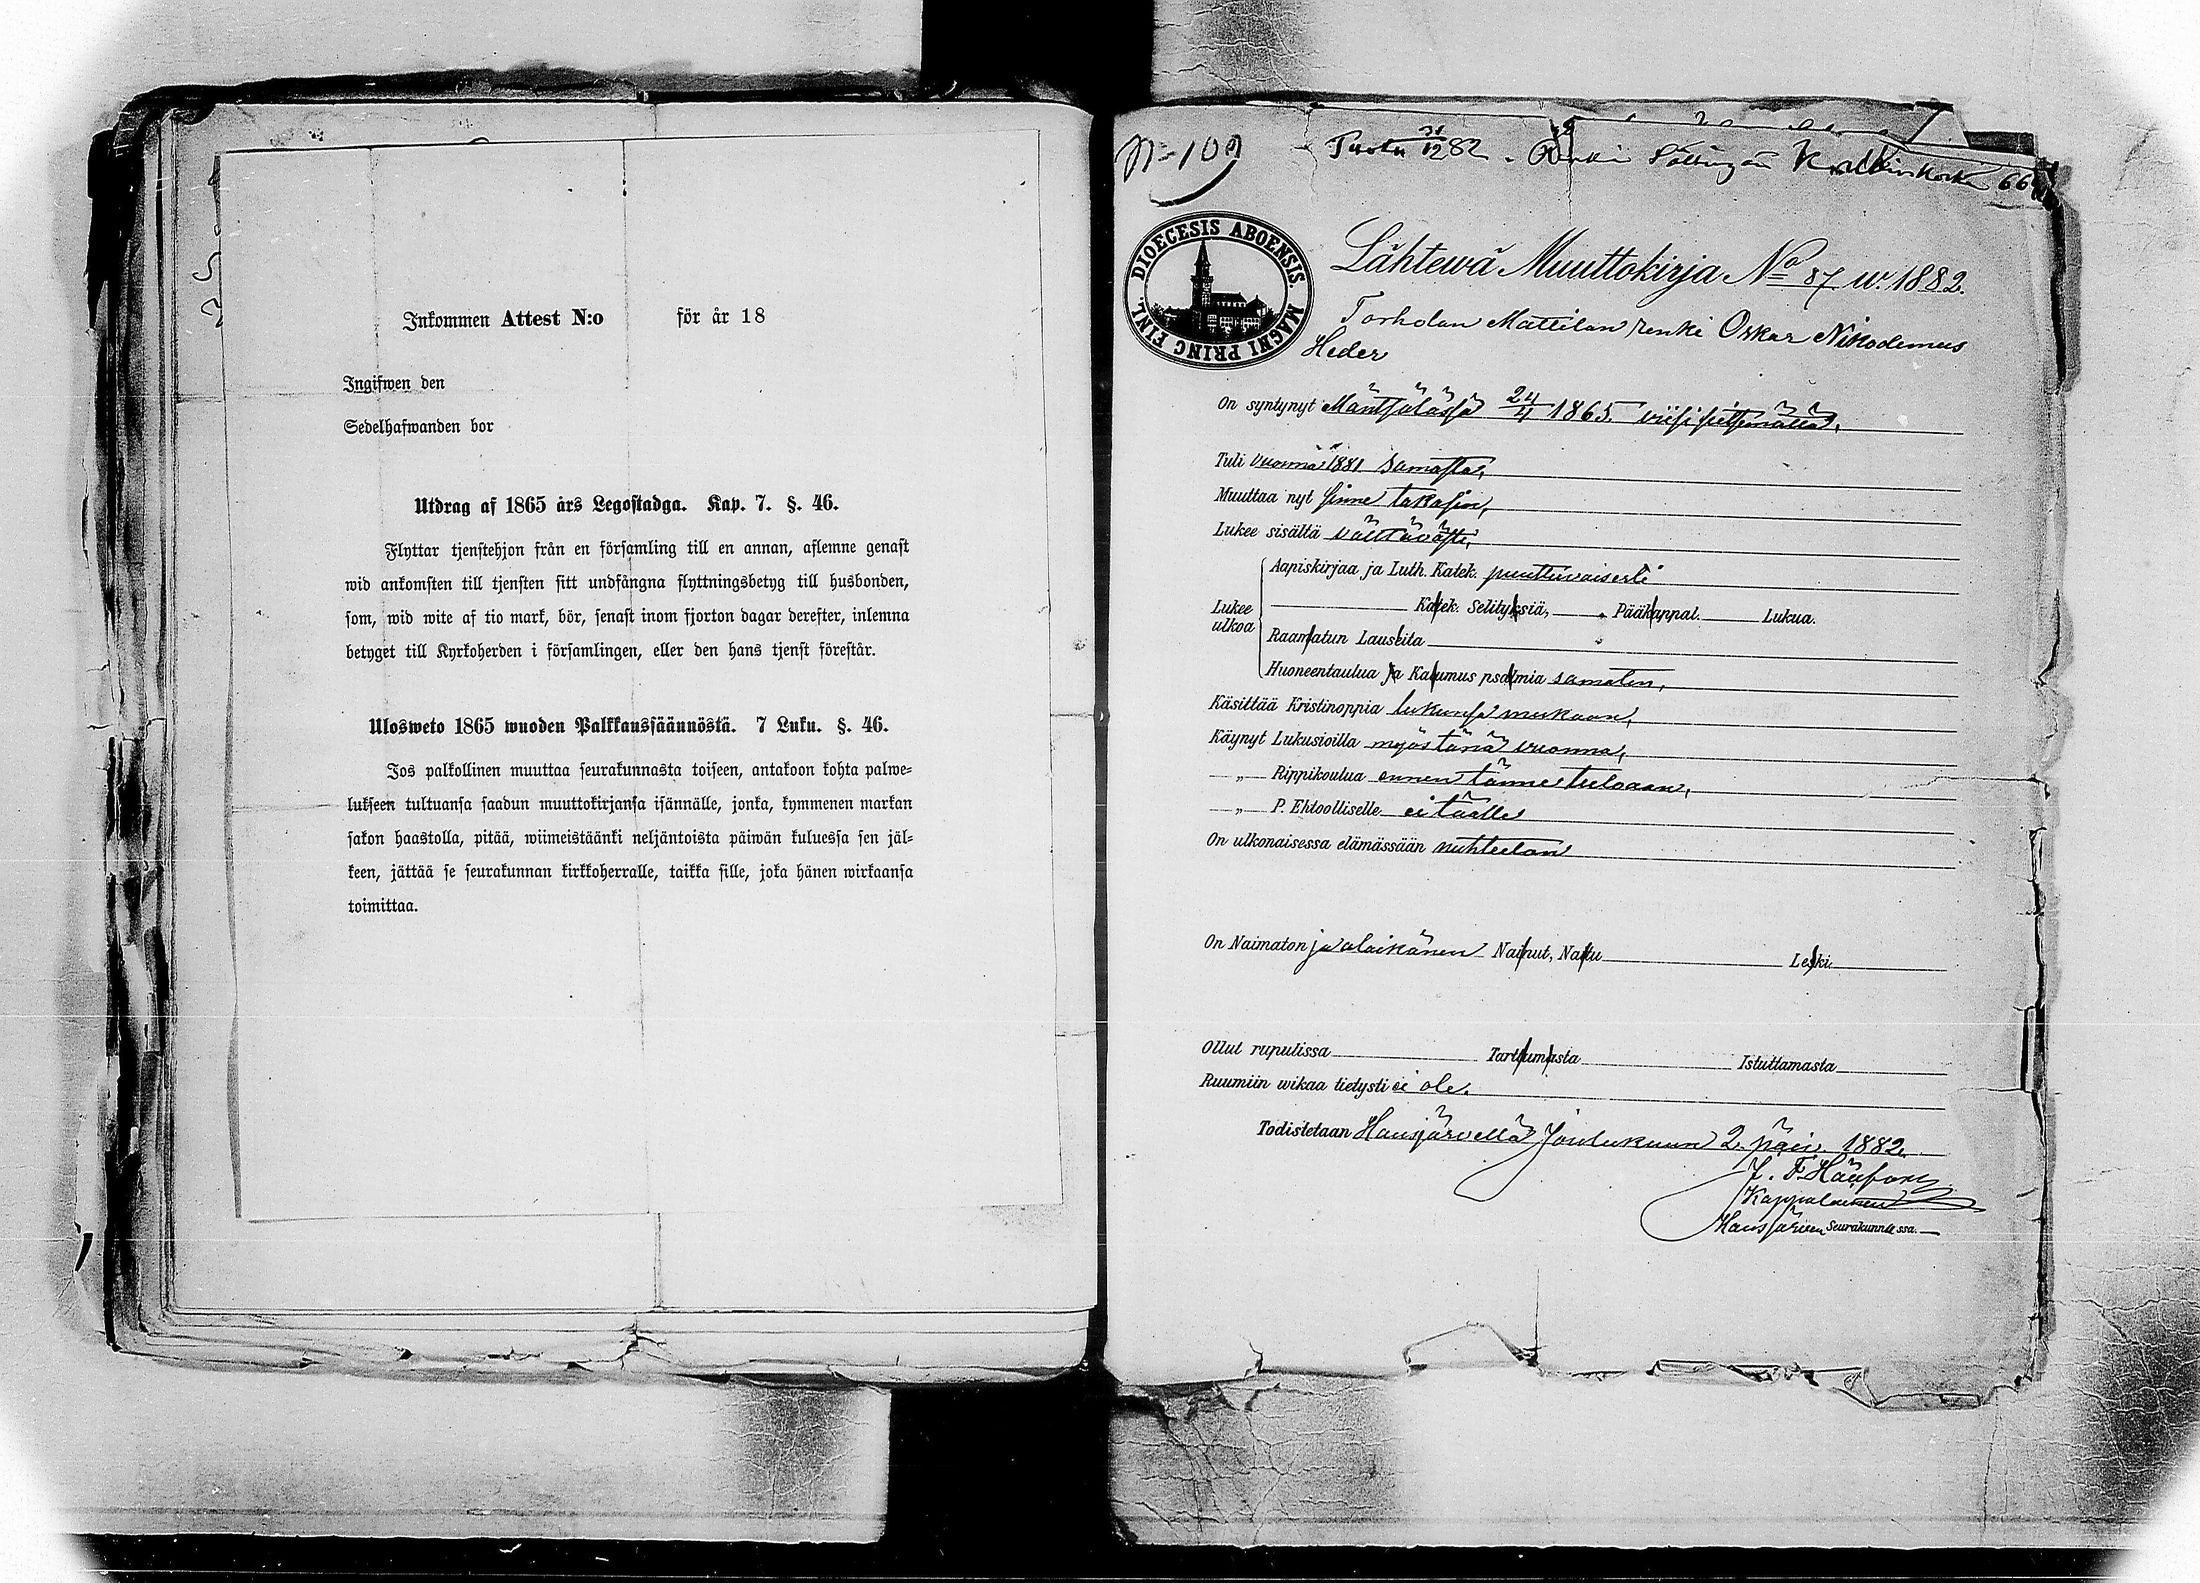 Inkommen Attest N:o för år 18
Ingifwen den
Sedelhafwanden bor
Utdrag af 1865 års Legostadga. Kap. 7. §. 46.
Flyttar tjenstehjon från en församling till en annan, aflemne genast
wid ankomsten till tjensten sitt undfångna flyttningsbetyg till husbonden,
som, wid wite af tio mark, bör, senast inom fjorton dagar derefter, inlemna
betyget till Kyrkoherden i församlingen, eller den hans tjenst förestår.
Ulosweto 1865 wuoden Palkkaussäännöstä. 7 Luku. §. 46.
Jos palkollinen muuttaa seurakunnasta toiseen, antakoon kohta palwe-
lukseen tultuansa saadun muuttokirjansa isännälle, jonka, kymmenen markan
sakon haastolla, pitää, wiimeistäänki neljäntoista päiwän kuluessa sen jäl-
keen, jättää se seurakunnan kirkkoherralle, taikka sille, joka hänen wirkaansa
toimittaa.
N:o 109 Tuotu 31/12 82. Renki 66
DIOECESIS ABOENSIS. MAGNI PRINC FINL.
Lähtewä Muuttokirja No 87 w. 1882.
Torholan Mattilan renki Oskar Nikodemus
Heder
On syntynyt Mäntsälässä 24/4 1865 viisi seitsemättä,
Tuli vuonna 1881 samasta,
Muuttaa nyt sinne takasin,
Lukee sisältä välttävästi,
Aapiskirjaa ja Luth. Katek. puuttuvaisesti
Lukee ulkoa Katek. Selityksiä, Pääkappal. Lukua.
Raamatun Lauseita
Huoneentaulua ja Katumus psalmia samaten,
Käsittää Kristinoppia lukunsa mukaan,
Käynyt Lukusioilla myös tänä vuonna,
„ Rippikoulua ennen tänne tuloaan,
„ P. Ehtoolliselle ei täällä
On ulkonaisessa elämässään nuhteeton
On Naimaton ja alaikänen Nainut, Naitu Leski
Ollut rupulissa Tarttumasta Istuttamasta
Ruumiin wikaa tietysti ei ole.
Todistetaan Hausjärvellä Joulukuun 2. päiv. 1882.
J. F.
Kappalainen
Hausjärven Seurakunnassa.